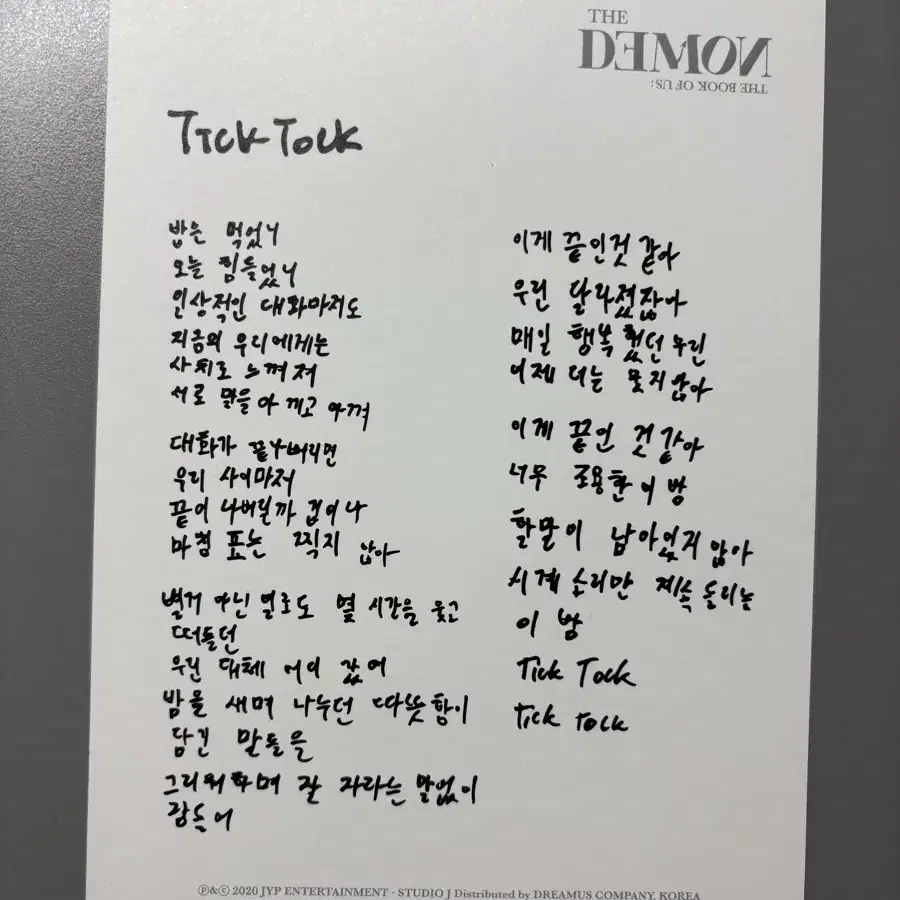 THE
DEMON
THE BOOK OF US:
Tick Tock
밥은 먹었니
오늘 힘들었니
인상적인 대화마저도
지금의 우리에게는
사치로 느껴져
서로 말을 아끼고 아껴
대화가 끝나버리면
우리 사이마저
끝이 나버릴까 겁이 나
마침표는 찍지 않아
별거 아닌 일로도 몇 시간을 웃고
떠들던
우린 대체 어디 갔어
밤을 새며 나누던 따뜻함이
담긴 말들을
그리워하며 잘 자라는 말없이
잠들어
이게 끝인것 같아
우린 달라졌잖아
매일 행복했던 우린
이제 더는 웃지않아
이게 끝인 것 같아
너무 조용한 이 방
할말이 남아있지 않아
시계 소리만 계속 들리는
이 밤
Tick Tock
Tick Tock
℗&© 2020 JYP ENTERTAINMENT · STUDIO J Distributed by DREAMUS COMPANY, KOREA